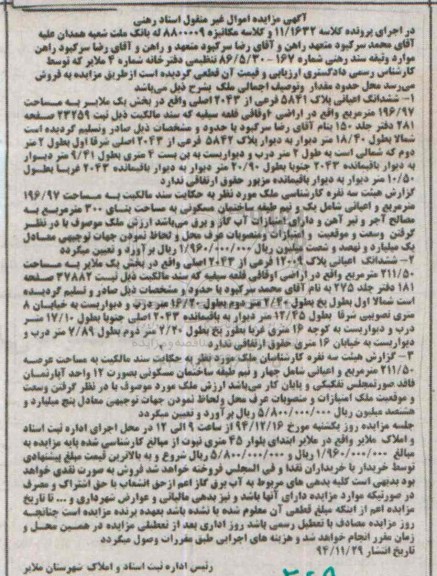 آگهی مزایده اموال غیر منقول اسناد رهنی
در اجرای پرونده کلاسه ۱۱/۱۶۳۲ و کلاسه مکانیزه ۸۸۰۰۰۰۹ له بانک ملت شعبه همدان علیه
آقای محمد سرکبود متعهد راهن و آقای رضا سرکبود متعهد و راهن و آقای رضا سرکبود راهن
موارد وثیقه سند رهنی شماره ۱۶۷ – ۸۶/۵/۳۰ تنظیمی دفترخانه شماره ۴ ملایر که توسط
کارشناس رسمی دادگستری ارزیابی و قیمت آن قطعی گردیده است ازطریق مزایده به فروش
می‌رسد محل حدود مقدار وتوصیف اجمالی ملک بشرح ذیل می‌باشد
۱– ششدانگ اعیانی پلاک ۵۸۴۱ فرعی از ۲۰۴۳ اصلی واقع در بخش یک ملایر به مساحت
۱۹۶/۹۷ مترمربع واقع در اراضی اوقافی قلعه سیفیه که سند مالکیت ذیل ثبت ۲۳۲۵۹ صفحه
۲۸۱ دفتر جلد ۱۵۰ بنام آقای رضا سرکبود با حدود و مشخصات ذیل صادر وتسلیم گردیده است
شمالا بطول ۱۸/۴۰ متر دیوار به دیوار پلاک ۵۸۴۲ فرعی از ۲۰۴۳ اصلی شرقا اول بطول ۲ متر
دوم که شمالی است به طول ۲ متر درب و دیواریست به بن بست ۴ متری بطول ۹/۴۱ متر دیوار
به دیوار باقیمانده ۲۰۴۳ جنوبا بطول ۲۰/۹۰ متر دیوار به دیوار باقیمانده ۲۰۴۳ غربا بطول
۱۰/۵۰ متر دیوار به دیوار باقیمانده مزبور حقوق ارتفاقی ندارد
گزارش هیئت سه نفره کارشناسی ملک مورد نظر به حکایت سند مالکیت به مساحت ۱۹۶/۹۷
مترمربع و اعیانی شامل یک و نیم طبقه ساختمان مسکونی به مساحت بنای ۳۰۰ مترمربع به
مصالح آجر و تیر آهن و دارای امتیازات آب گاز و برق می‌باشد ارزش ملک موصوف با در نظر
گرفتن وسعت و موقعیت و امتیازات ومنصوبات عرف محل و لحاظ نمودن جهات توجیهی معادل
یک میلیارد و نهصد و شصت میلیون ریال ۱/۹۶۰/۰۰۰/۰۰۰ ریال برآورد و تعیین میگردد
۲– ششدانگ اعیانی پلاک ۱۲۰۰۹ فرعی از ۲۰۴۳ اصلی واقع در بخش یک ملایر به مساحت
۲۱۱/۵۰ مترمربع واقع در اراضی اوقافی قلعه سیفیه که سند مالکیت ذیل ثبت ۳۷۸۸۲ صفحه
۱۸۱ دفتر جلد ۲۷۵ به نام آقای محمد سرکبود با حدود و مشخصات ذیل صادر و تسلیم گردیده
است شمالا اول بطول پخ بطول ۲/۴۰ متر دوم بطول ۱۶/۲۰ متر درب و دیواریست به خیابان ۸
متری تصویبی شرقا بطول ۱۲/۴۵ متر دیوار به دیوار باقیمانده ۲۰۴۳ اصلی جنوبا بطول ۱۷/۱۰ متر
درب و دیواریست به کوچه ۱۶ متری غربا بطور پخ بطول ۲/۴۰ متر دوم بطول ۷/۸۹ متر درب و
دیواریست به خیابان ۱۶ متری حقوق ارتفاقی ندارد
۳– گزارش هیئت سه نفره کارشناسان ملک مورد نظر به حکایت سند مالکیت به مساحت عرصه
۲۱۱/۵۰ مترمربع و اعیانی شامل چهار و نیم طبقه ساختمان مسکونی بصورت ۱۲ واحد آپارتمان
فاقد صورتمجلس تفکیکی و پایان کار می‌باشد ارزش ملک مورد موصوف با در نظر گرفتن وسعت
و موقعیت ملک امتیازات و منصوبات عرف محل ولحاظ نمودن جهات توجیهی معادل پنج میلیارد و
هشتصد میلیون ریال ۵/۸۰۰/۰۰۰/۰۰۰ ریال برآورد و تعیین میگردد
جلسه مزایده روز یکشنبه مورخ ۹۴/۱۲/۱۶ از ساعت ۹ الی ۱۲ در محل اجرای اداره ثبت اسناد
و املاک ملایر واقع در ملایر ابتدای بلوار ۴۵ متری نبوت از مبالغ کارشناسی شده پایه مزایده به
مبالغ ۱/۹۶۰/۰۰۰/۰۰۰ ریال و ۵/۸۰۰/۰۰۰/۰۰۰ ریال شروع و به بالاترین قیمت مبلغ پیشنهادی
توسط خریدار یا خریداران نقدا و فی المجلس فروخته خواهد شد فروش به صورت نقدی خواهد
بود بدیهی است کلیه بدهی های مربوط به آب برق گاز اعم ازحق انشعاب یا حق اشتراک و مصرف
در صورتیکه موارد مزایده دارای آنها باشد و نیز بدهی مالیاتی و عوارض شهرداری و ... تا تاریخ
مزایده اعم از اینکه مبلغ قطعی آن معلوم شده یا نشده باشد بعهده برنده مزایده است چنانچه
روز مزایده مصادف با تعطیل رسمی باشد روز اداری بعد از تعطیلی مزایده در همین محل و
زمان مقرر انجام خواهد شد و هزینه های اجرایی طبق مقررات وصول میگردد
تاریخ انتشار ۹۴/۱۱/۲۹
رئیس اداره ثبت اسناد و املاک شهرستان ملایر